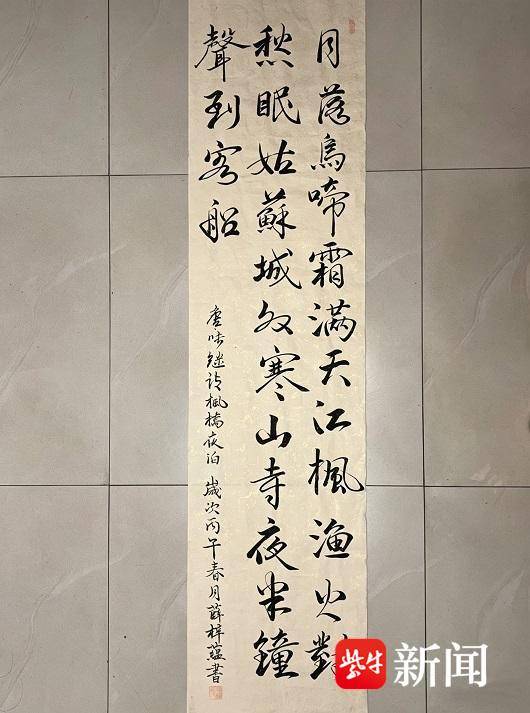 月落烏啼霜滿天江楓漁火對
愁眠姑蘇城外寒山寺夜半鐘
聲到客船
唐張繼詩楓橋夜泊 歲次丙午春月薛梓蘊書
紫牛新闻